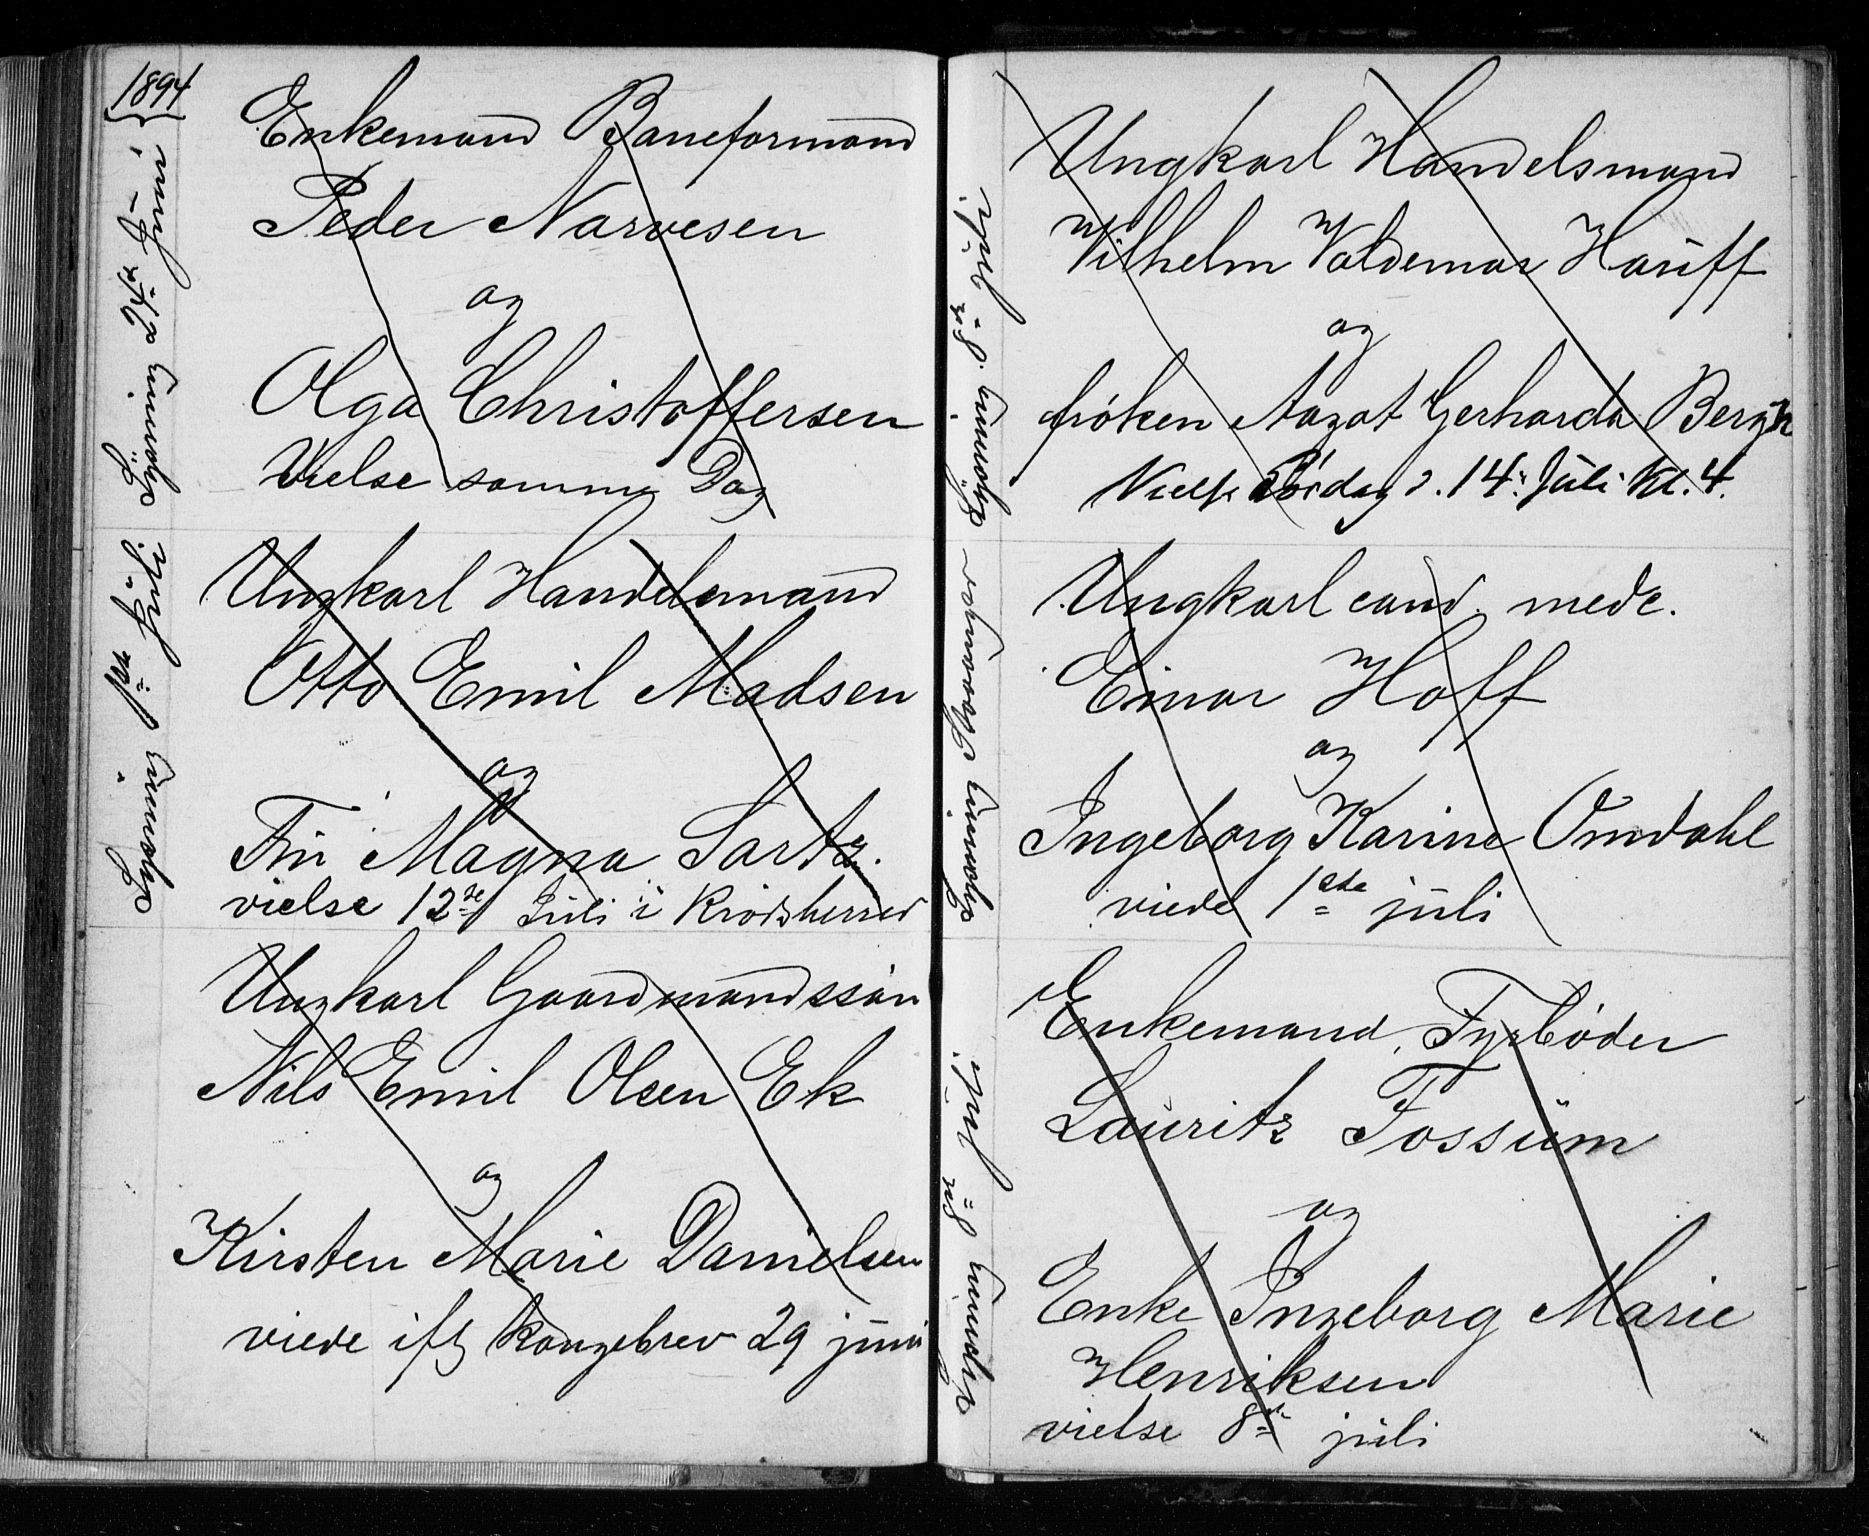 1894
Enkemand Baneformand
Peder Narvesen
og
Olga Christoffersen
Vielse samme Dag
Ungkarl Handelsmand
Otto Emil Madsen
og
Magna Sartz.
vielse 12te Juli i Krödsherred
Ungkarl Gaardmandssön
Nils Emil Olsen Ek
og
Kirsten Marie Danielsen
viede kongebrev 29 juni
Lysning 1ste Juli
Ungkarl Handelsmand
Vilhelm Valdemar Hauff
og
fröken Aagot Gerharda Bergh
14. Juli Kl. 4.
Ungkarl cand. medc.
Einar Hoff
og
Ingeborg Karine Omdahl
viede 1ste juli
Enkemand, Fyrböder
Lauritz Fossum
og
Enke Ingeborg Marie
Henriksen
vielse 8de juli